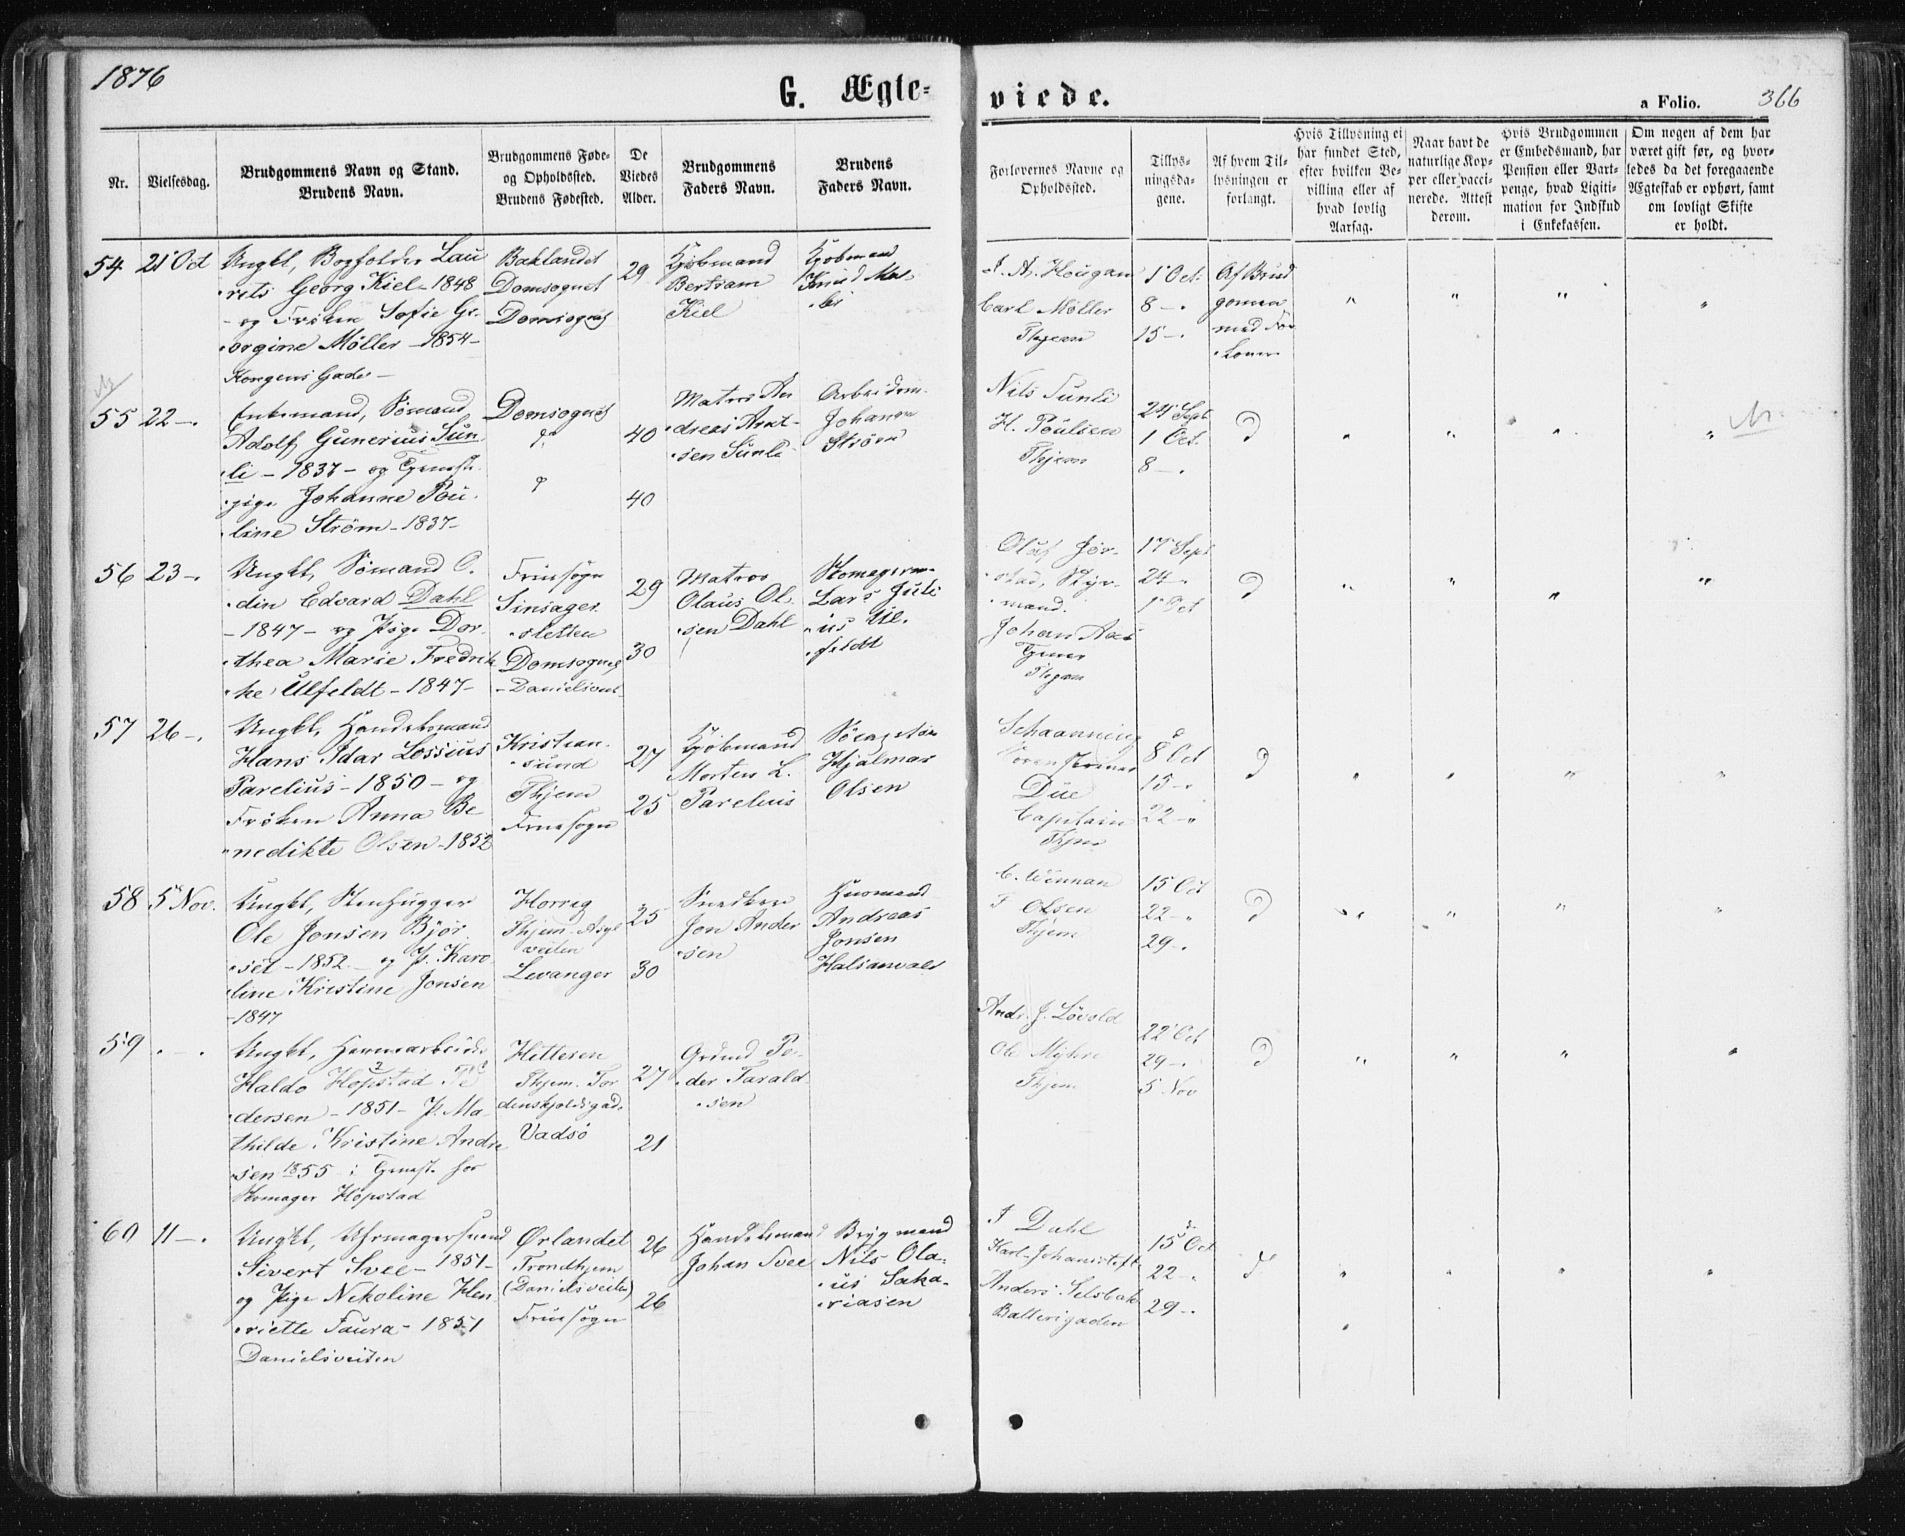 1876
G. Ægte-
viede.
a Folio. 366
Nr.
Vielsesdag.
Brudgommens Navn og Stand.
Brudens Navn.
Brudgommens Føde-
og Opholdssted.
Brudens Fødested.
De
Viedes
Alder.
Brudgommens
Faders Navn.
Brudens
Faders Navn.
Forlovernes Navne og
Opholdssted.
Tillys-
ningsda-
gene.
Af hvem Til-
lysningen er
forlangt.
Hvis Tillysning ei
har fundet Sted,
efter hvilken Be-
villing eller af
hvad lovlig
Aarsag.
Naar havt de
naturlige Kop-
per eller vacci-
nerede. Attest
derom.
Hvis Brudgommen
er Embedsmand, har
Pension eller Vart-
penge, hvad Ligiti-
mation for Indskud
i Enkekassen.
Om nogen af dem har
været gift før, og hvor-
ledes da det foregaaende
Ægteskab er ophørt, samt
om lovligt Skifte
er holdt.
54 21 Oct
Ungkl, Bogholder Lau
rits Georg Kiel - 1848
- og Frøken Sofie Ge-
orgine Møller - 1854 -
Kongens Gade -
Baklandet
Domsognet
Domsognet
29
Kjøbmand
Bertram
Kiel
Kjøbmand
Knud Møl-
ler
Hougan
Carl Møller
Thjem
1 Oct.
8 -
15 -
Af Brud
gommen
med For
lover
55 22 -
Enkemand, Sømand
Adolf Gunerius Sun
li - 1837 - og Tjeneste
pige Johanne Pou
line Strøm - 1837 -
Domsognet
40
40
Matros An
dreas Arnt-
sen Sunli
Arbeidsm.
Johan
Strøm
Nils Sunli
H. Poulsen
Thjem
24 Sept
1 Oct.
8 -
56 23 -
Ungkl, Sømand O.
din Edvard Dahl
- 1847 - og Pige Dor-
thea Marie Fredrik
ke Ulfeldt - 1847 -
Fruesogn
Sinsager
sletten
Domsognet
- Danielsveit -
29
30
Matros
Olaus Ol-
sen Dahl
Skomagerm.
Lars Juli
us Ul-
feldt
Oluf Jør-
stad, Styr-
mand.
Johan
Thjem
17 Sept
24 -
1 Oct
57 26 -
Ungkl, Handelsmand
Hans Idar Lossius
Parelius - 1850 - og
Frøken Anna Be
nedikte Olsen - 1852
Kristian-
sund
Thjem
Fruesogn
27
25
Kjøbmand
Morten L.
Parelius
Hjalmar
Olsen
Schaanning
Due
Capitain
Thjem
8 Oct
15 -
22 -
58 5 Nov.
Ungkl, Stenhugger
Ole Jonsen Bjør
set - 1852 - og P. Karo
line Kristine Jonsen
- 1847
Horrig
Thjem. Asyl
veiten
Levanger
25
30
Snedker
Jon Ander
sen
Husmand
Andreas
Jonsen
Halsanvald
C. Winnan
Olsen
Thjem
15 Oct
22 -
29 -
59 - -
Ungkl, Havnearbeider
Haldo Hopstad Pe
dersen - 1851 - P. Ma
thilde Kristine Andre
sen 1855 - i Tjenest. for
Skomager Hopstad
Hitteren
Thjem. Tor
denskjoldsgad.
Vadsö
27
21
Grdmd Pe-
der Tarald
sen
Andr. J. Løvold
Ole Myhre
Thjem
22 Oct
29 -
5 Nov
60 11 -
Ungkl, Uhrmagersvend
Sivert Svee - 1851 -
og Pige Nekoline Hen-
riette Faura - 1851
Danielsveiten
Ørlandet
Trondhjem
(Danielsveiten)
Fruesogn
26
26
Handelsmand
Johan Svee
Brygmand
Nils Ola-
us Saka-
riasen
Dahl
Karl-Johanstift
Anders Selsbak
Batterigaden
15 Oct
22 -
29 -